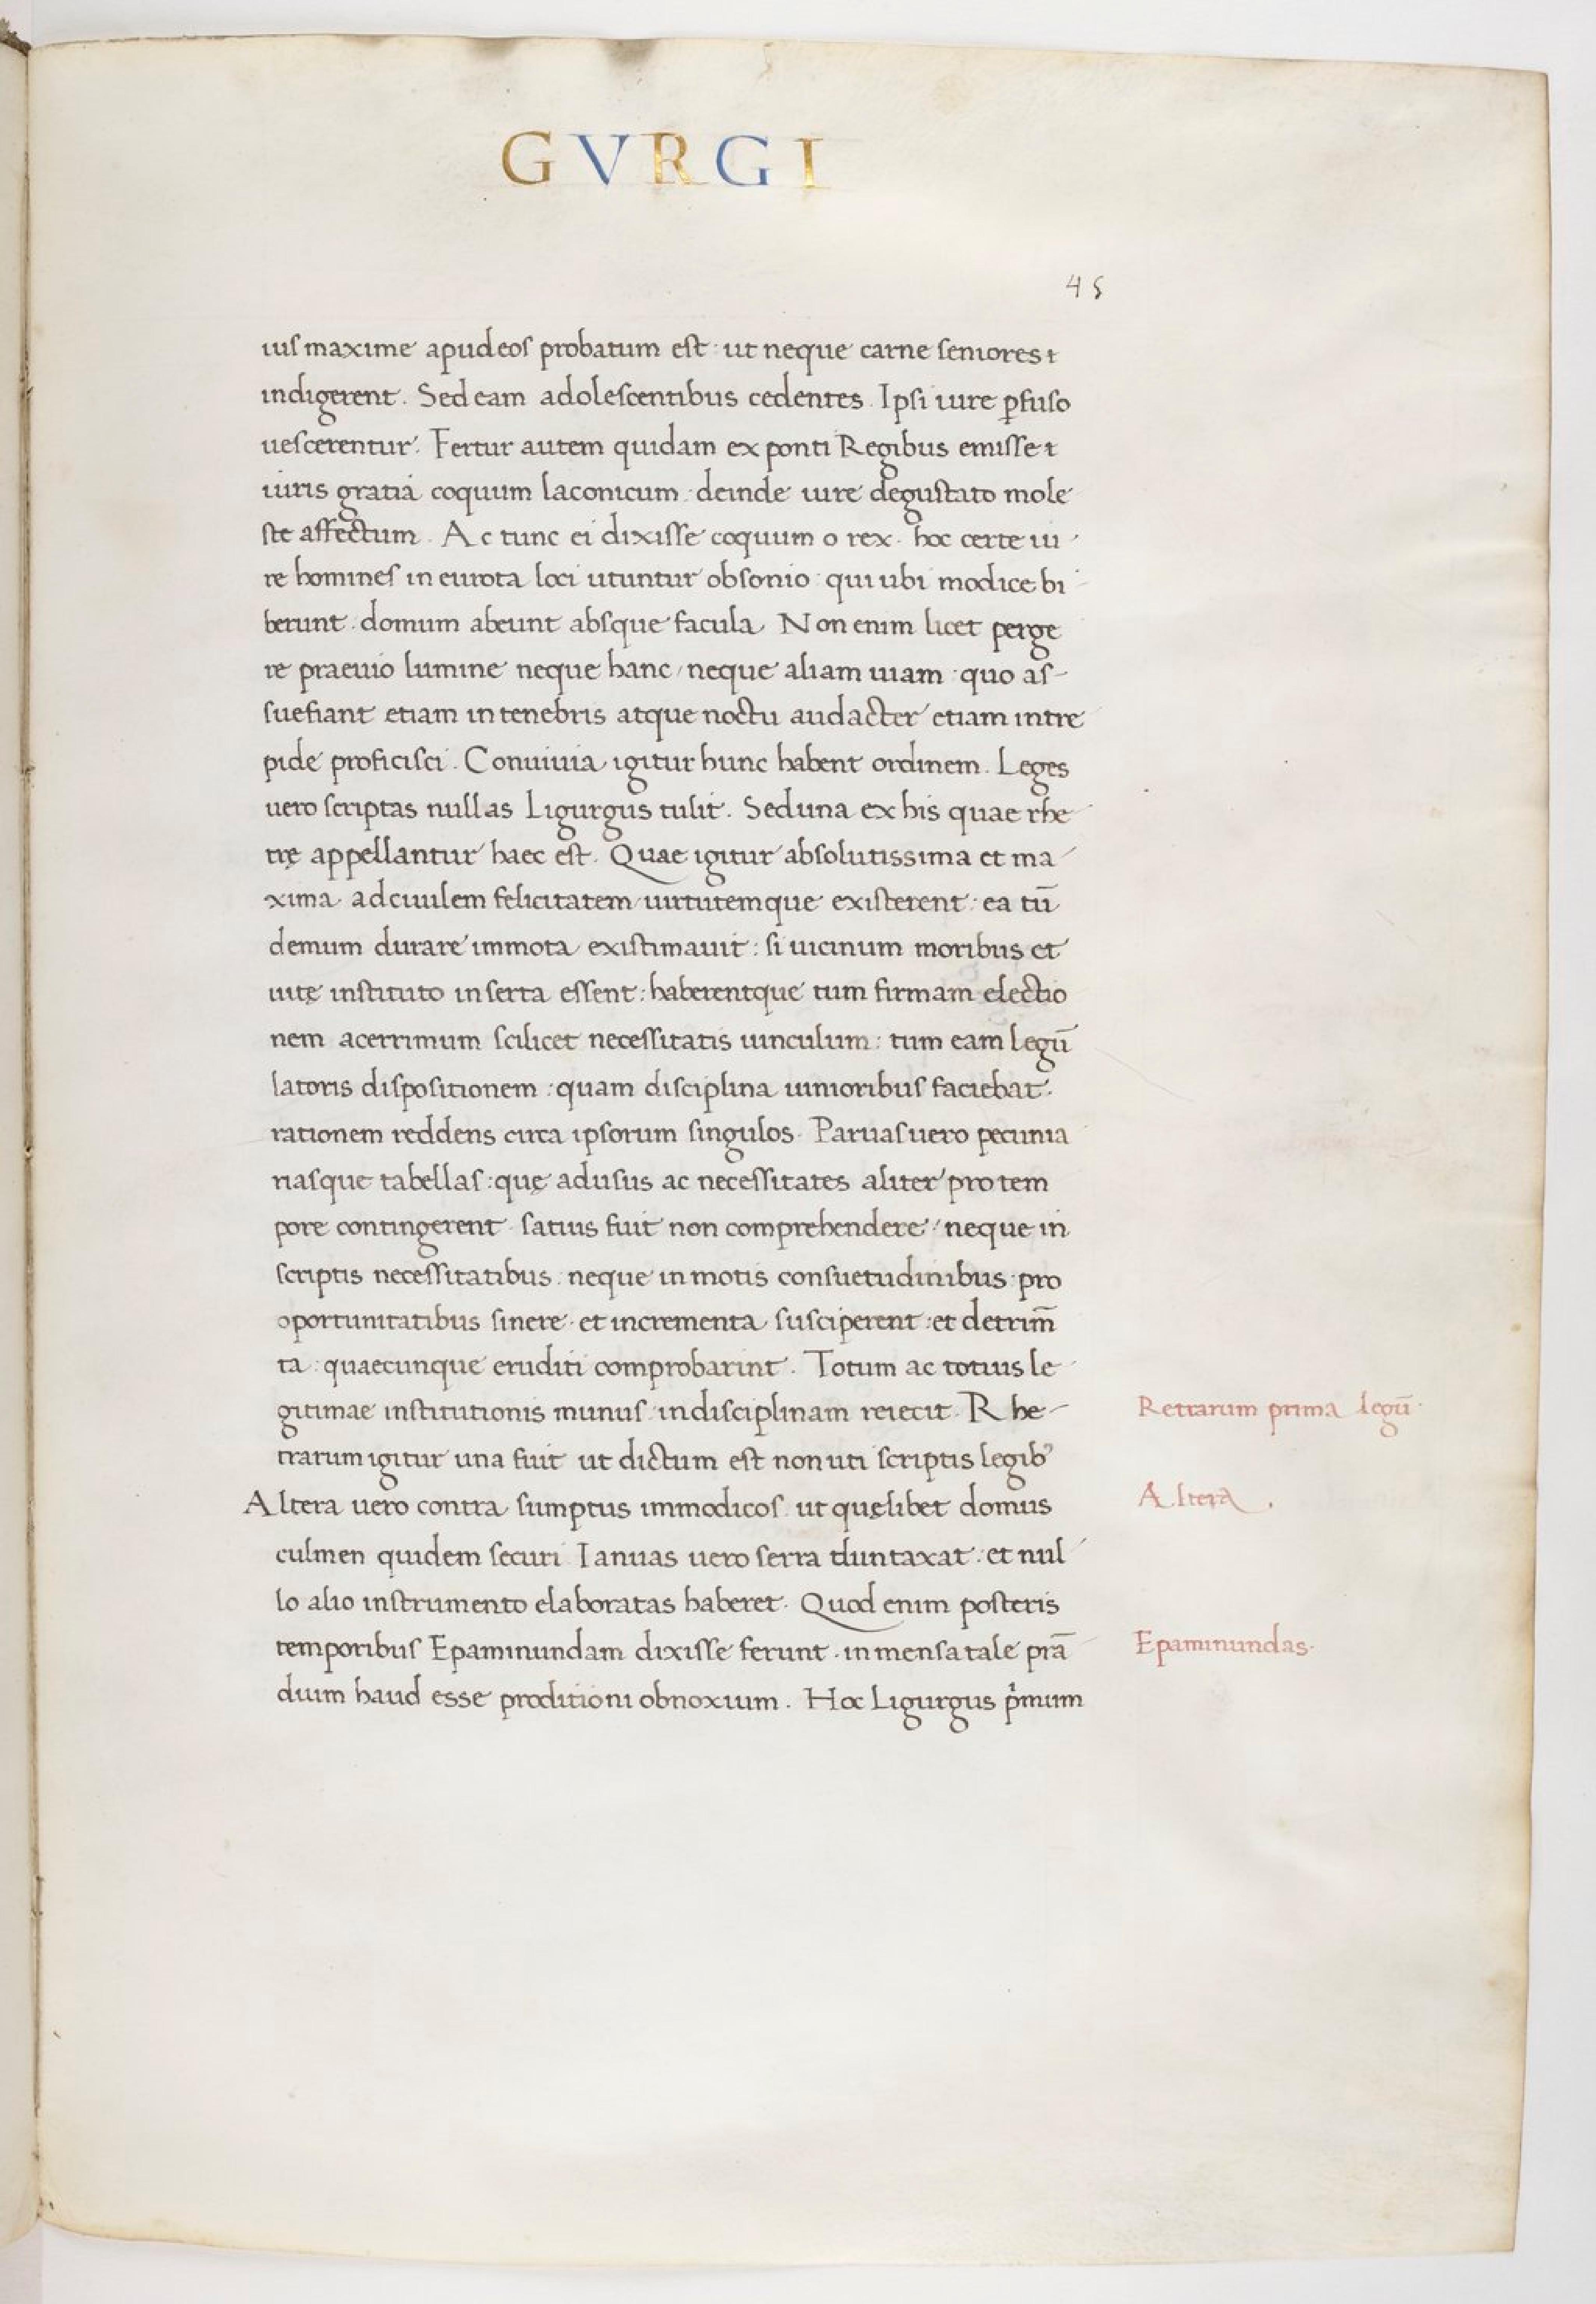 GVRGI
45
ius maxime apud eos probatum est : ut neque carne seniores
indigerent . Sed eam adolescentibus cedentes . Ipsi iure ꝑfuso
uescerentur . Fertur autem quidam ex ponti Regibus emisse
iuris gratia coquum laconicum . deinde iure degustato mole
ste affectum . Ac tunc ei dixisse coquum o rex . hoc certe iu
re homines in eurota loci utuntur obsonio : qui ubi modice bi
berunt . domum abeunt absque facula . Non enim licet perge
re praeuio lumine neque hanc / neque aliam uiam : quo as-
suefiant etiam in tenebris atque noctu audacter etiam intre
pide proficisci . Conuiuia igitur hunc habent ordinem . Leges
uero scriptas nullas Ligurgus tulit . Sed una ex his quae rhe
trę appellantur haec est . Quae igitur absolutissima et ma
xima ad ciuilem felicitatem uirtutemque existerent : ea tū
demum durare immota existimauit : si uicinum moribus et
uitę instituto inserta essent : haberentque tum firmam electio
nem acerrimum scilicet necessitatis uinculum : tum eam legū
latoris dispositionem : quam disciplina iunioribus faciebat .
rationem reddens circa ipsorum singulos . Paruas uero pecunia
riasque tabellas : quę ad usus ac necessitates aliter pro tem
pore contingerent . satius fuit non comprehendere / neque in
scriptis necessitatibus . neque inmotis consuetudinibus : pro
oportunitatibus sinere . et incrementa susciperent : et detrim̄
ta : quaecunque eruditi comprobarint . Totum ac totius le
gitimae institutionis munus in disciplinam reiecit . Rhe-
trarum igitur una fuit ut dictum est non uti scriptis legibꝰ
Altera uero contra sumptus immodicos . ut quęlibet domus
culmen quidem securi Ianuas uero serra duntaxat : et nul
lo alio instrumento elaboratas haberet . Quod enim posteris
temporibus Epaminundam dixisse ferunt . in mensa tale prā
dium haud esse proditioni obnoxium . Hoc Ligurgus p̓mum
Retrarum prima legū .
Altera .
Epaminundas .